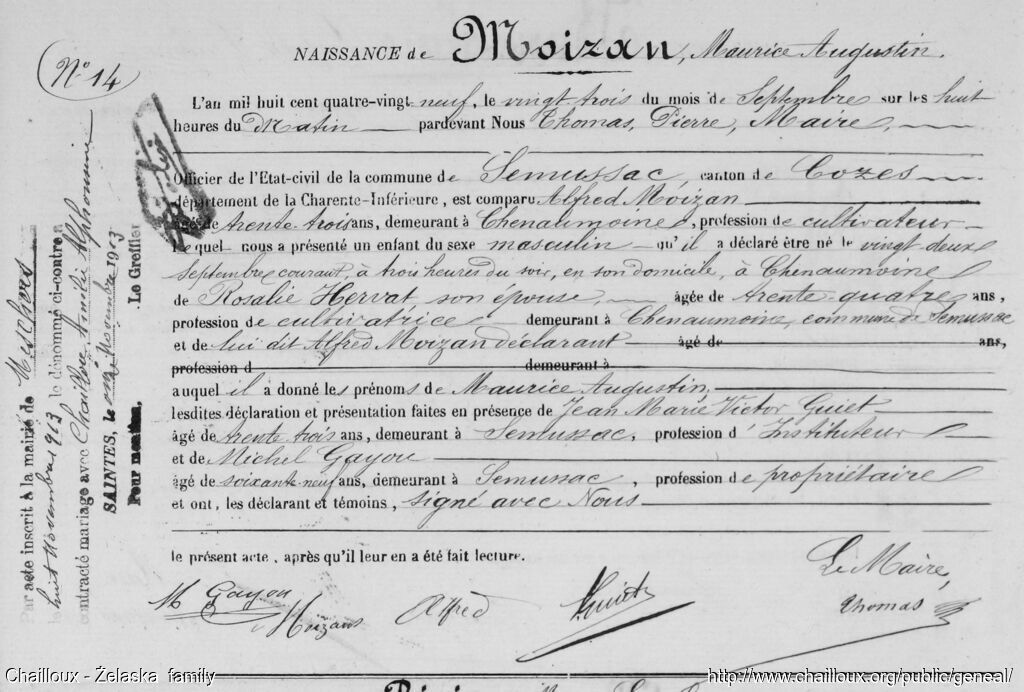 N° 14
NAISSANCE de Moizan, Maurice Augustin.
L'an mil huit cent quatre-vingt-neuf, le vingt trois du mois de Septembre sur les huit
heures du Matin pardevant Nous Thomas, Pierre, Maire,
Officier de l'Etat-civil de la commune de Semussac, canton de Cozes
département de la Charente-Inférieure, est comparu Alfred Moizan
âgé de trente trois ans, demeurant à Chenaumoine, profession de cultivateur
Lequel nous a présenté un enfant du sexe masculin qu'il a déclaré être né le vingt deux
septembre courant, à trois heures du soir, en son domicile, à Chenaumoine
de Rosalie Hervat, son épouse, âgée de trente-quatre ans,
profession de cultivatrice demeurant à Chenaumoine, commune de Semussac
et de lui dit Alfred Moizan déclarant âgé de ans,
profession d demeurant à
auquel il a donné les prénoms de Maurice Augustin,
lesdites déclaration et présentation faites en présence de Jean Marie Victor Guiet
âgé de trente trois ans, demeurant à Semussac, profession d'Instituteur
et de Michel Gayou
âgé de soixante-neuf ans, demeurant à Semussac, profession de propriétaire
et ont, les déclarant et témoins, signé avec Nous
le présent acte, après qu'il leur en a été fait lecture.
Le Maire,
M Gayou Moizans Alfred Guiet Thomas
Par acte inscrit à la mairie de Meschers
le huit Novembre 1913 le dénommé ci-contre a
contracté mariage avec Chailloux Amélie Alphonsine
SAINTES, le Novembre 1913
Pour mention, Le Greffier
Chailloux - Żelaska family
http://www.chailloux.org/public/geneal/